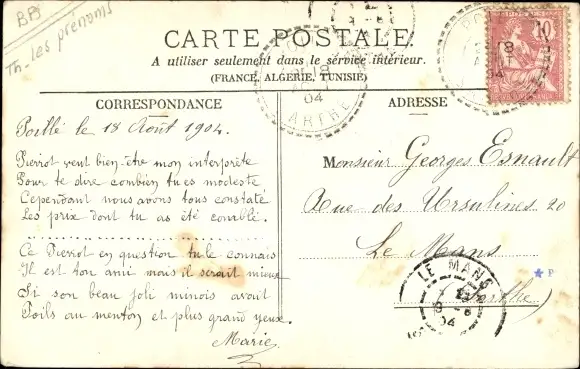 BPJ
Th - les prénoms
CARTE POSTALE.
A utiliser seulement dans le service intérieur.
(FRANCE, ALGERIE, TUNISIE)
CORRESPONDANCE
ADRESSE
Poillé le 18 Août 1904.
Pierrot veut bien être mon interprète
Pour te dire combien tu es modeste
Cependant nous avons tous constaté
Les prix dont tu as été comblé.
Ce Pierrot en question tu le connais
Il est ton ami mais il serait mieux
Si son beau joli minois avait
Poils au menton et plus grand yeux.
Marie
Monsieur Georges Esnault
Rue des Ursulines 20
Le Mans
Sarthe
LE MANS
04
18
04
SARTHE
10
18
04
P